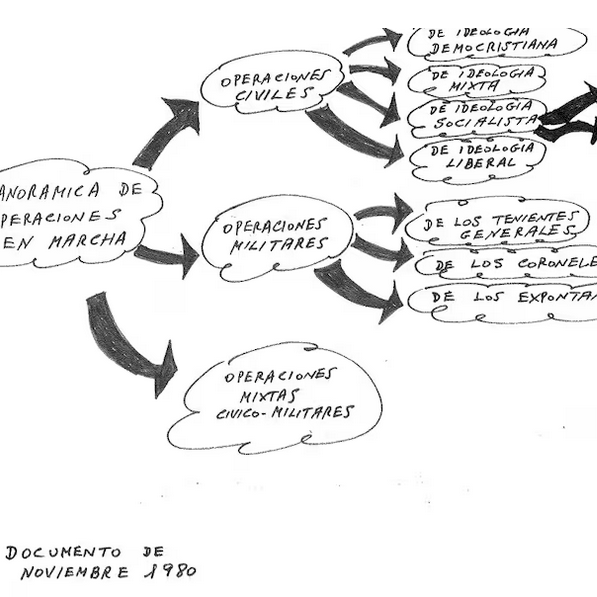 DE IDEOLOGIA
DEMOCRISTIANA
DE IDEOLOGIA
MIXTA
DE IDEOLOGIA
SOCIALISTA
DE IDEOLOGIA
LIBERAL
OPERACIONES
CIVILES
ANORAMICA DE
PERACIONES
EN MARCHA
OPERACIONES
MILITARES
DE LOS TENIENTES
GENERALES
DE LOS CORONELE
DE LOS EXPONTA
OPERACIONES
MIXTAS
CIVICO-MILITARES
DOCUMENTO DE
NOVIEMBRE 1980